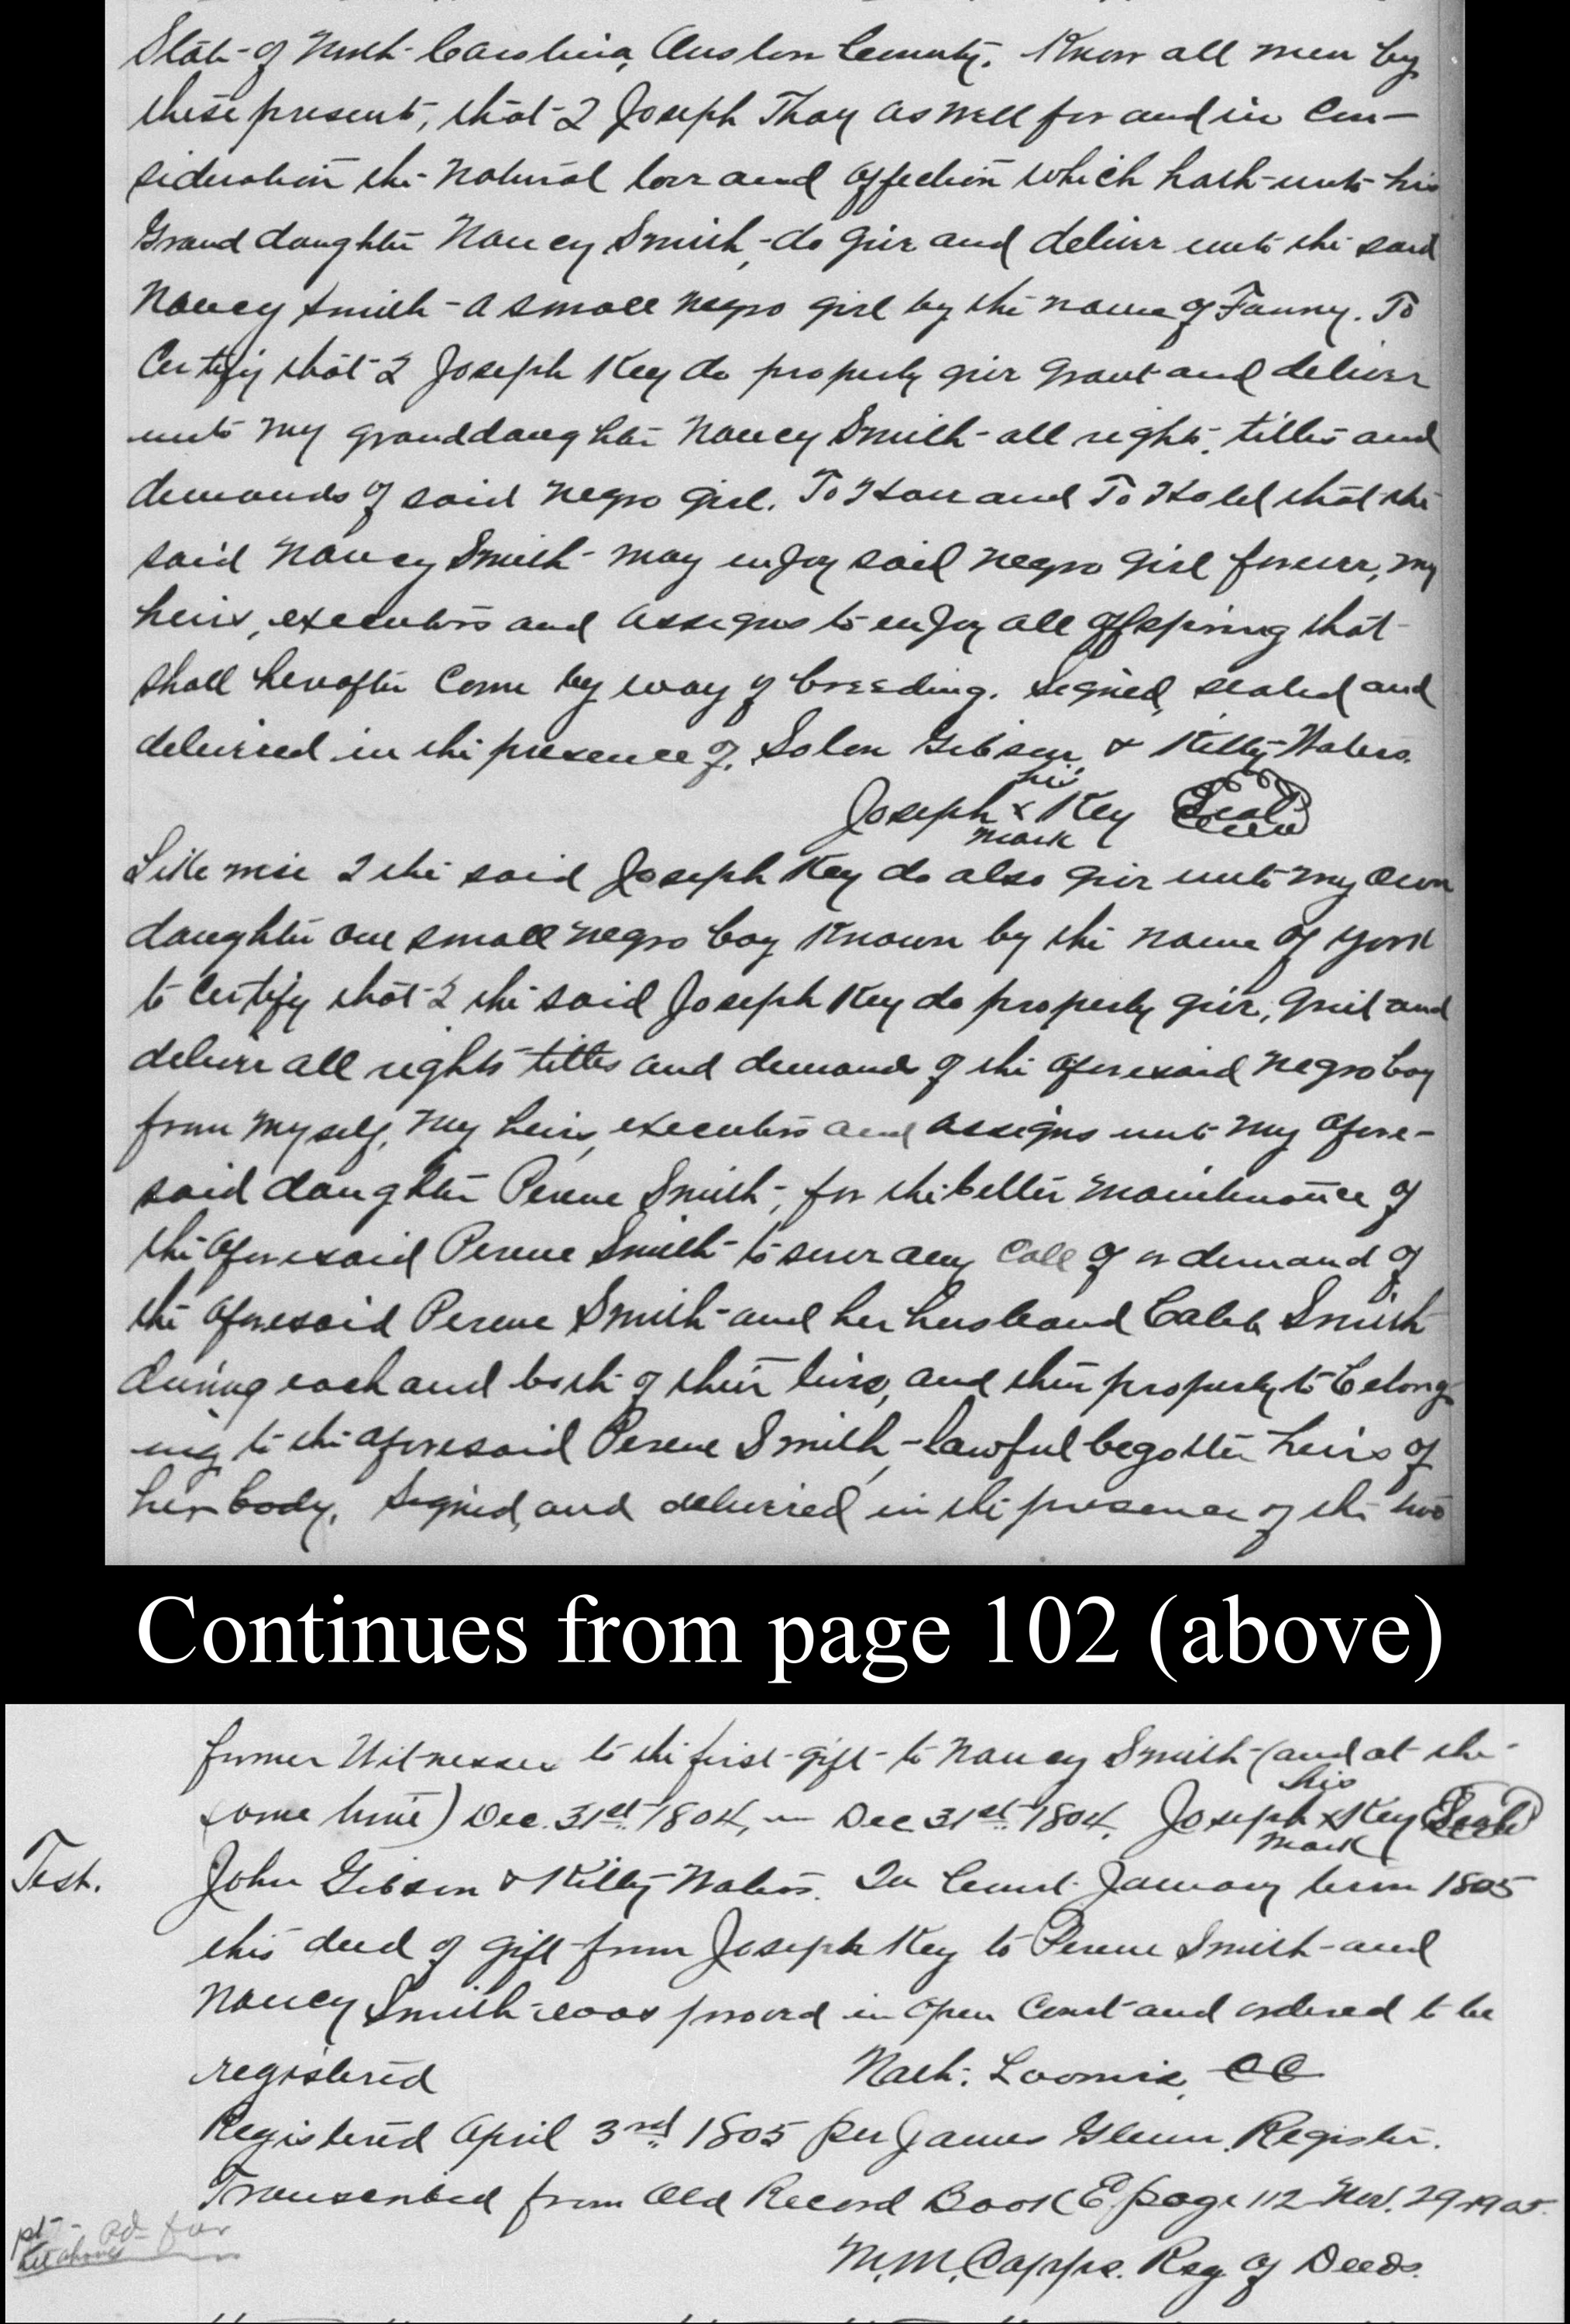 State of North Carolina, Onslow County. Know all men by
these present, that I Joseph Thay as well for and in Con-
sideration the natural love and affection which hath unto his
Grand daughter Nancy Smith, do give and deliver unto the said
Nancy Smith - a small negro girl by the name of Fanny. To
Certify that I Joseph Key do properly give Grant and deliver
unto my granddaughter Nancy Smith - all rights, titles and
demands of said negro girl. To Have and To Hold that the
said Nancy Smith - may enjoy said negro girl forever, my
heirs, executors and assigns to enjoy all offspring that
shall hereafter Come by way of breeding. Signed, sealed and
delivered in the presence of, Solon Gibson, & Kilby Waters.
his
Joseph x Key Seal
mark
Like wise I the said Joseph Key do also give unto my own
daughter one small negro boy Known by the name of York
to Certify that I the said Joseph Key do properly give, quit and
deliver all rights titles and demands of the aforesaid negro boy
from myself, my heirs, executors and assigns unto my afore-
said daughter Perene Smith, for the better maintenance of
the aforesaid Perene Smith - to any Call of or demand of
the aforesaid Perene Smith - and her husband Caleb Smith
during each and both of their lives, and then properly to belong-
ing to the aforesaid Perene Smith, - lawful begotten heirs of
her body. Signed, and delivered in the presence of the two
Continues from page 102 (above)
former Witnesses to the first gift to Nancy Smith - (and at the
same time) Dec. 31st. 1804, Dec 31st. 1804.
his
Joseph x Key Seal
mark
Test. John Gibson & Kilby Waters. In Court January term 1805
this deed of gift from Joseph Key to Perene Smith - and
Nancy Smith - was proved in open Court and ordered to be
registered Nath: Loomis, CC
Registered April 3rd. 1805 per James Glenn, Register.
Transcribed from Old Record Book E page 112 Nov. 29 1905.
M. M. Capps. Reg of Deeds.